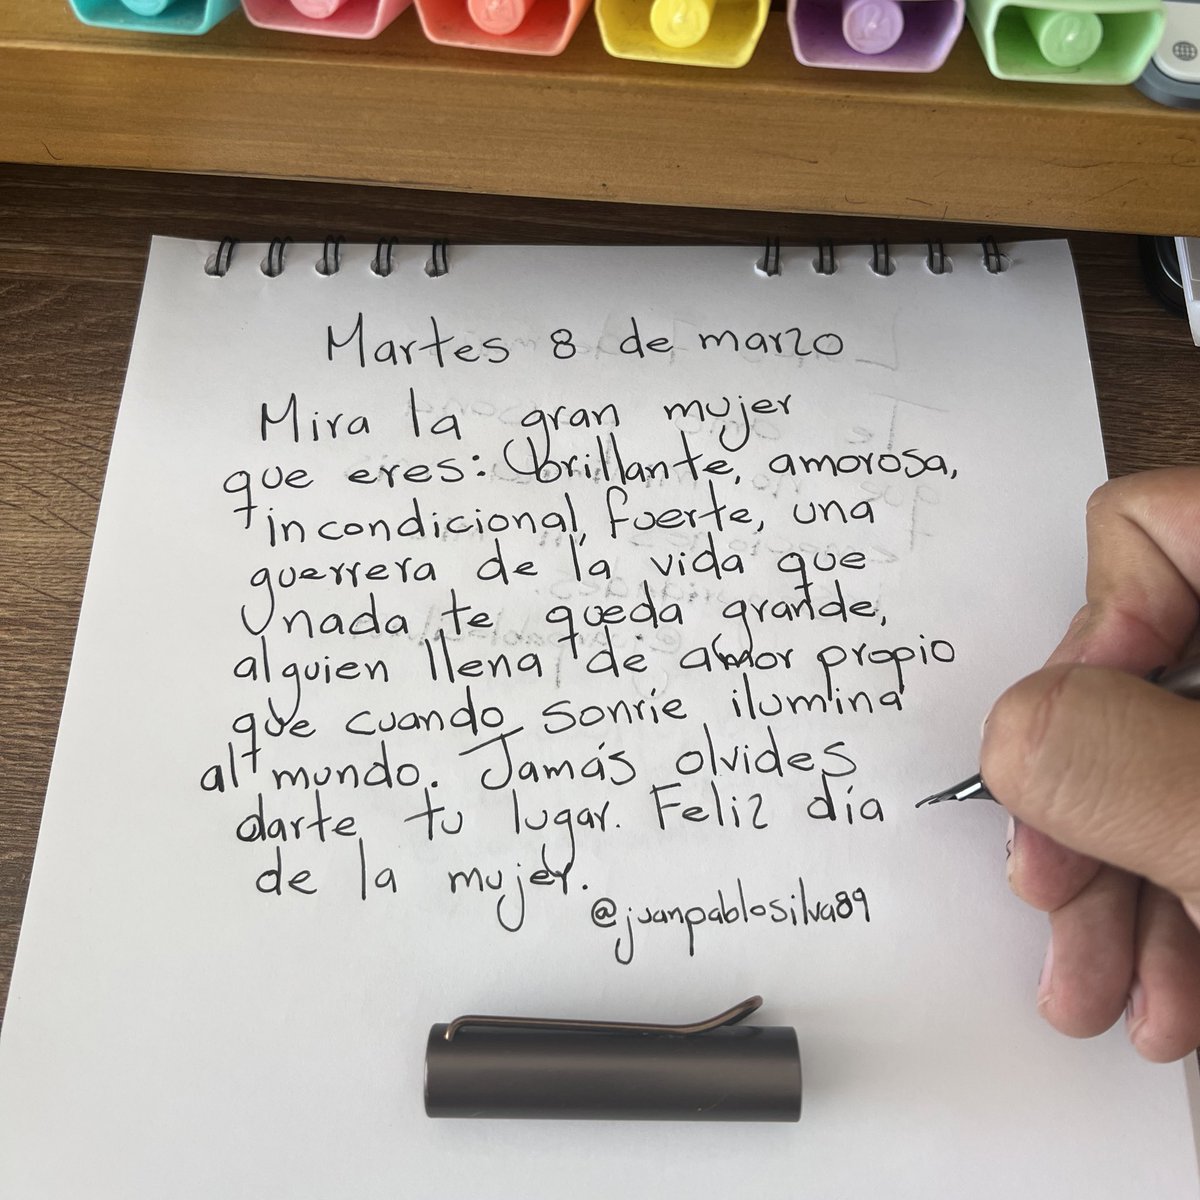 Martes 8 de marzo
Mira la gran mujer
que eres: brillante, amorosa,
incondicional, fuerte, una
guerrera de la vida que
nada te queda grande,
alguien llena de amor propio
que cuando sonríe ilumina
al mundo. Jamás olvides
darte tu lugar. Feliz día
de la mujer.
@juanpablosilva89